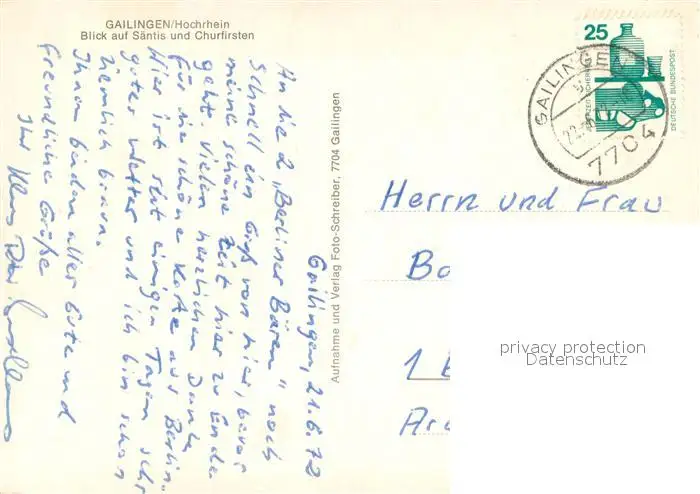 GAILINGEN/Hochrhein
Blick auf Säntis und Churfirsten
Gailingen, 21.6.72
An die 2 „Berliner Bären" noch
schnell ein Gruß von hier, bevor
meine schöne Zeit hier zu Ende
geht. Vielen herzlichen Dank
für die schöne Karte aus Berlin.
Hier ist seit einigen Tagen sehr
gutes Wetter und ich bin schon
ziemlich braun.
Ihnen beiden alles Gute und
freundliche Grüße
Ihr Klaus
Aufnahme und Verlag Foto-Schreiber, 7704 Gailingen
25
DEUTSCHE BUNDESPOST
GAILINGEN
7704
Herrn und Frau
Ba
1
privacy protection
Datenschutz